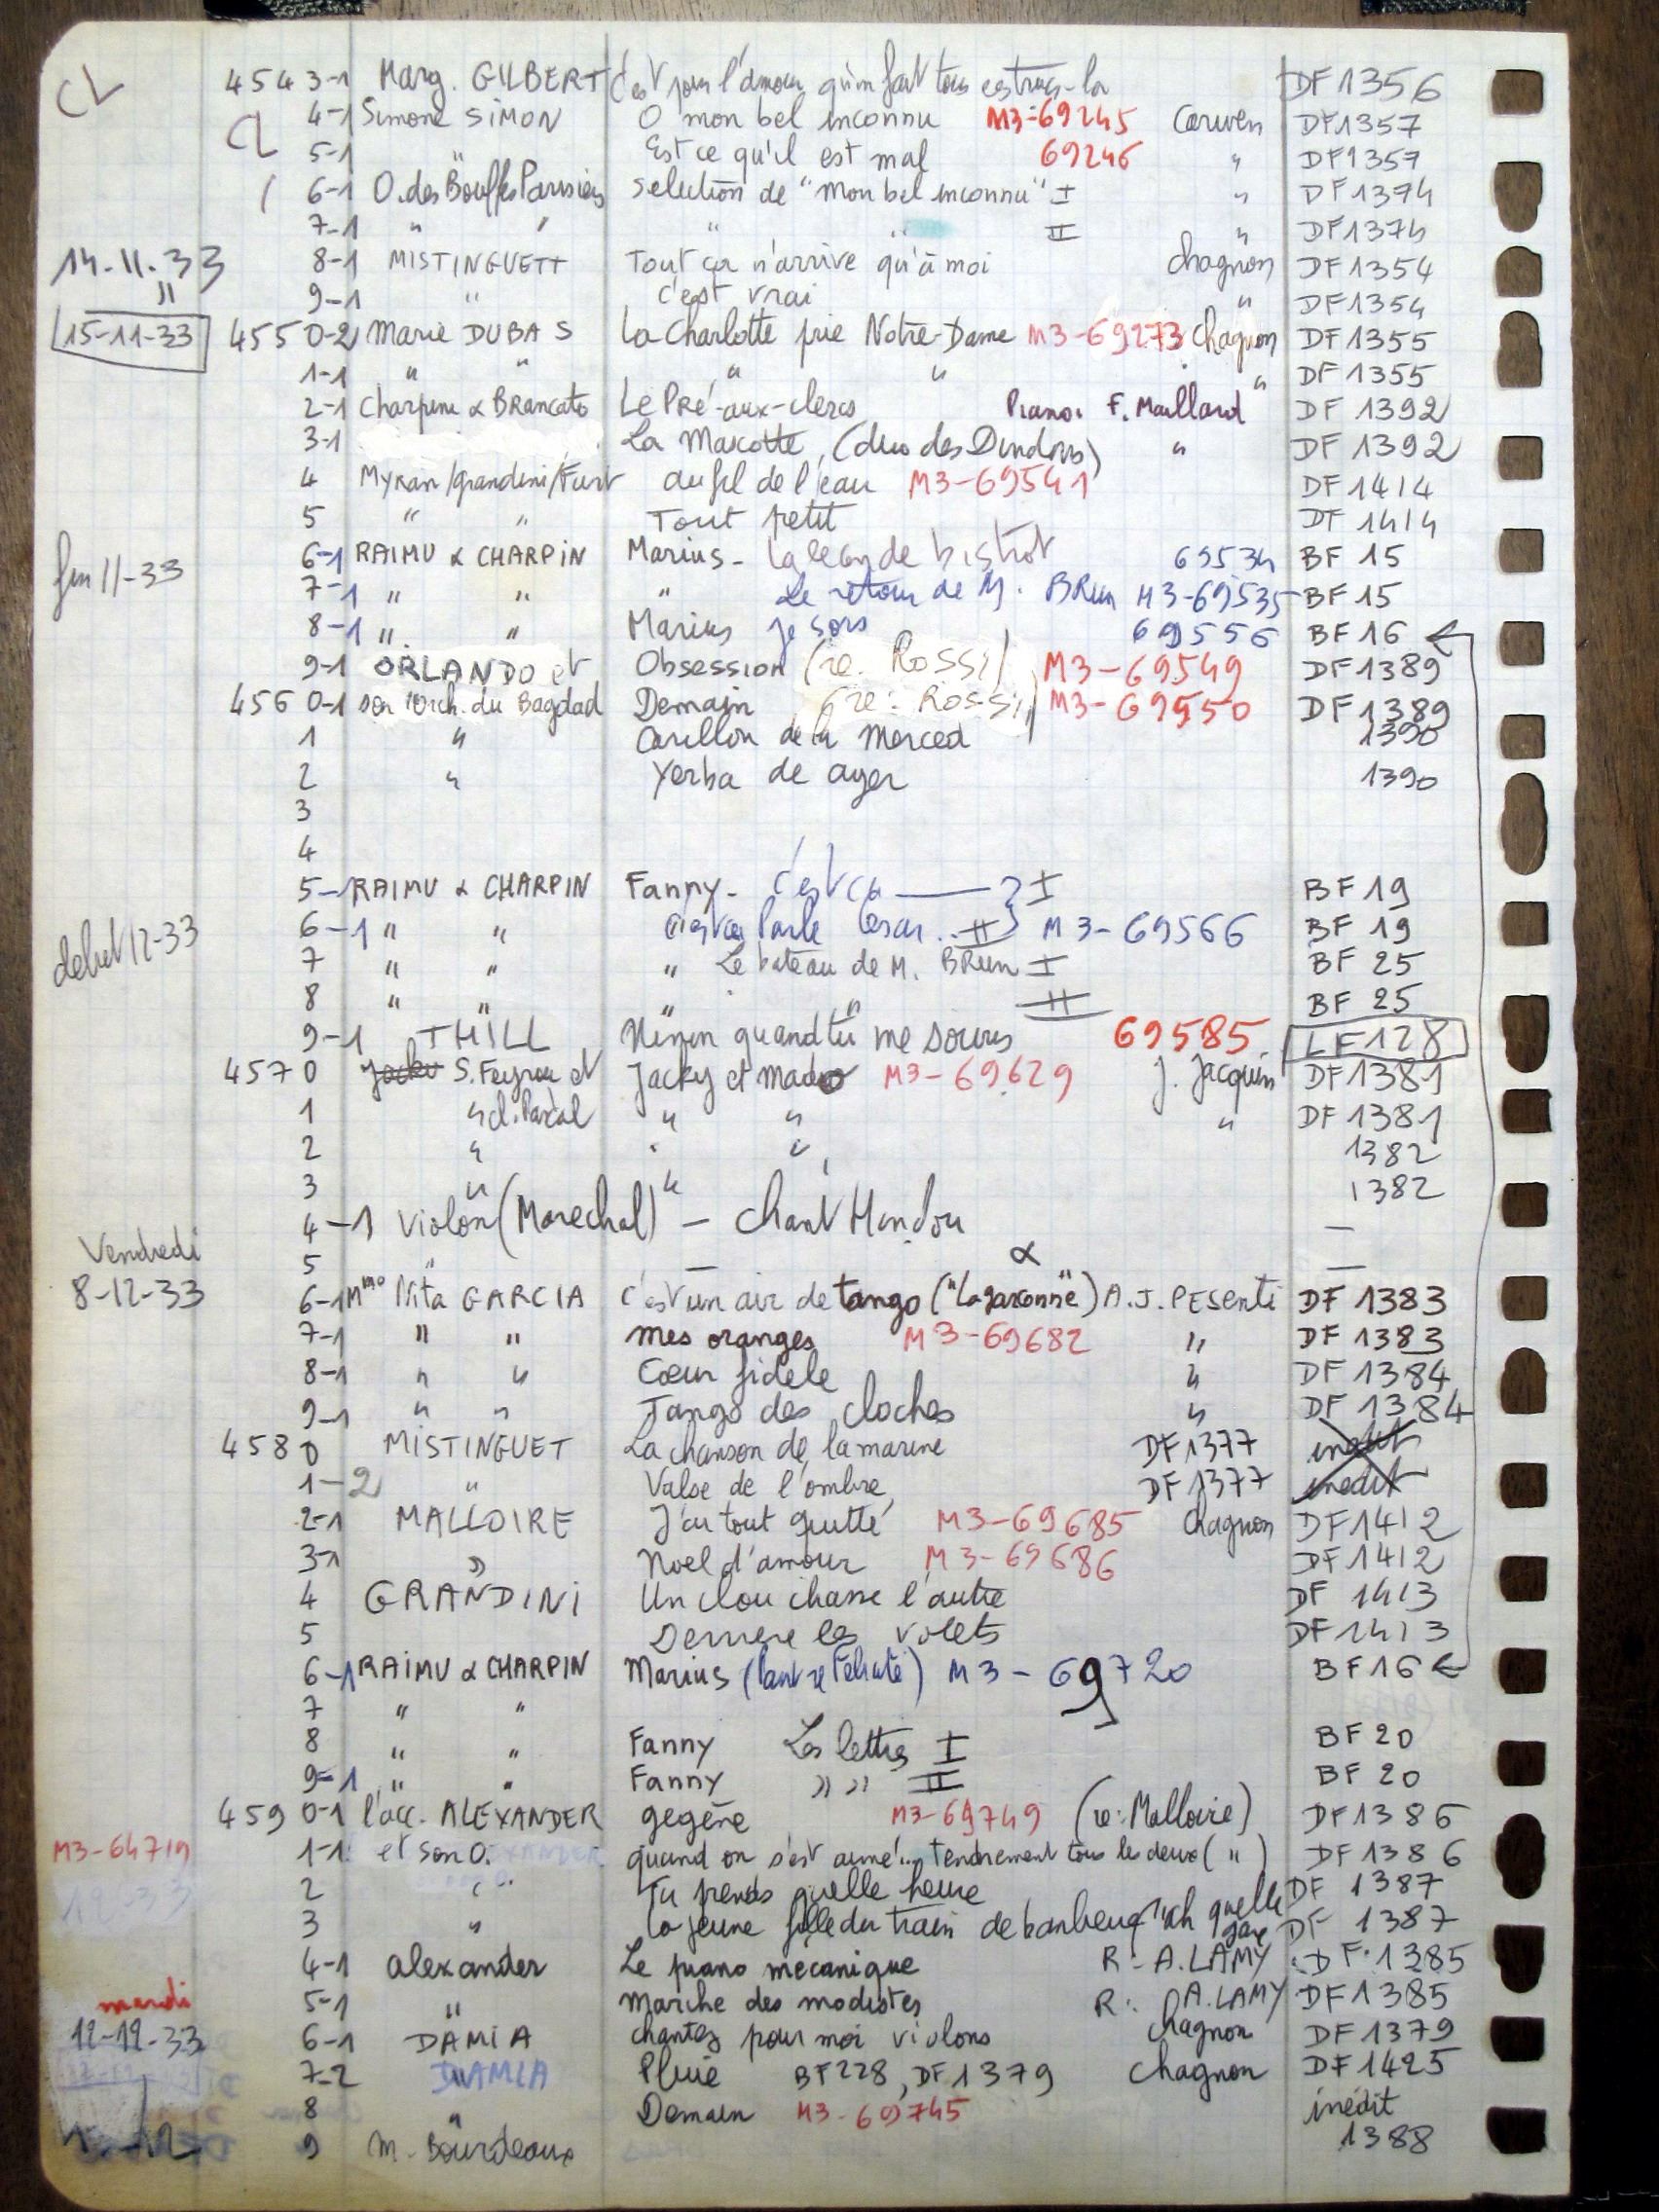 CL 454 3-1 Marg. GILBERT C'est pour l'amour qu'on fait tous ces trucs-la DF1356
CL 4-1 Simone SIMON O mon bel inconnu M3-69245 Cariven DF1357
5-1 " Est ce qu'il est mal 69246 " DF1357
6-1 O. des Bouffes Parisiens Selection de "Mon bel inconnu" I " DF1374
7-1 " " " " II " DF1374
14-11-33 8-1 MISTINGUETT Tout ça n'arrive qu'à moi Chagnon DF1354
" 9-1 " c'est vrai " DF1354
15-11-33 455 0-2 Marie DUBAS La Charlotte prie Notre-Dame M3-69273 Chagnon DF1355
1-1 " " " " " DF1355
2-1 Charpini & Brancato Le Pré-aux-clercs Piano: F. Maillard DF 1392
3-1 La Mascotte, (duo des Dindons) " DF 1392
4 Myran/Grandini/Furt au fil de l'eau M3-69541 DF 1414
5 " " Tout petit DF 1414
fin 11-33 6-1 RAIMU & CHARPIN Marius - La leçon de bistrot 69534 BF 15
7-1 " " " Le retour de M. BRun M3-69535 BF 15
8-1 " " Marius je sors 69556 BF 16
9-1 ORLANDO et Obsession (re. ROSSI) M3-69549 DF1389
456 0-1 son orch. du Bagdad Demain (re: ROSSI) M3-69550 DF1389
1 " Carillon de la Merced 1390
2 " Yerba de ayer 1390
3
4
5-1 RAIMU & CHARPIN Fanny - C'est ça I BF 19
debut 12-33 6-1 " " Cesar.. II M3-69566 BF 19
7 " " " Le bateau de M. BRun I BF 25
8 " " " " II BF 25
9-1 THILL Ninon quand tu me souris 69585 LF128
457 0 Jacky S. Feyrou et Jacky et Mado M3-69629 J. Jacquin DF1381
1 " Cl. Pascal " " " DF1381
2 " " " 1382
3 " " 1382
4-1 Violon (Marechal) - Chant Hindou —
5 " — —
Vendredi
8-12-33 6-1 Mme Nita GARCIA c'est un air de tango ("La garçonne") & A. J. PESenti DF 1383
7-1 " " mes oranges M3-69682 " DF 1383
8-1 " " Cœur fidele " DF 1384
9-1 " " Tango des cloches " DF 1384
458 0 MISTINGUET La chanson de la marine DF1377 inedit
1-2 " Valse de l'ombre DF1377 inedit
2-1 MALLOIRE J'ai tout quitté M3-69685 Chagnon DF1412
3-1 " Noel d'amour M3-69686 DF1412
4 GRANDINI Un clou chasse l'autre DF 1413
5 Derriere les volets DF1413
6-1 RAIMU & CHARPIN Marius M3-69720 BF16
7 " "
8 " " Fanny Les lettres I BF 20
9-1 " " Fanny " " II BF 20
459 0-1 l'acc. ALEXANDER gegène M3-69749 (re: Malloire) DF1386
M3-64719 1-1 et son O. quand on s'est aimé!... tendrement tous les deux (") DF1386
2 " Tu prends quelle heure DF 1387
3 " La jeune fille du train de banlieue "ah quelle gare DF 1387
4-1 alexander Le piano mecanique R: A. LAMY DF 1385
mardi 5-1 " Marche des modistes R: A. LAMY DF1385
12-12-33 6-1 DAMIA chantez pour moi violons Chagnon DF1379
7-2 DAMIA Pluie BF228, DF1379 Chagnon DF1425
8 " Demain M3-69745 inédit
9 M. Bourdeaux 1388